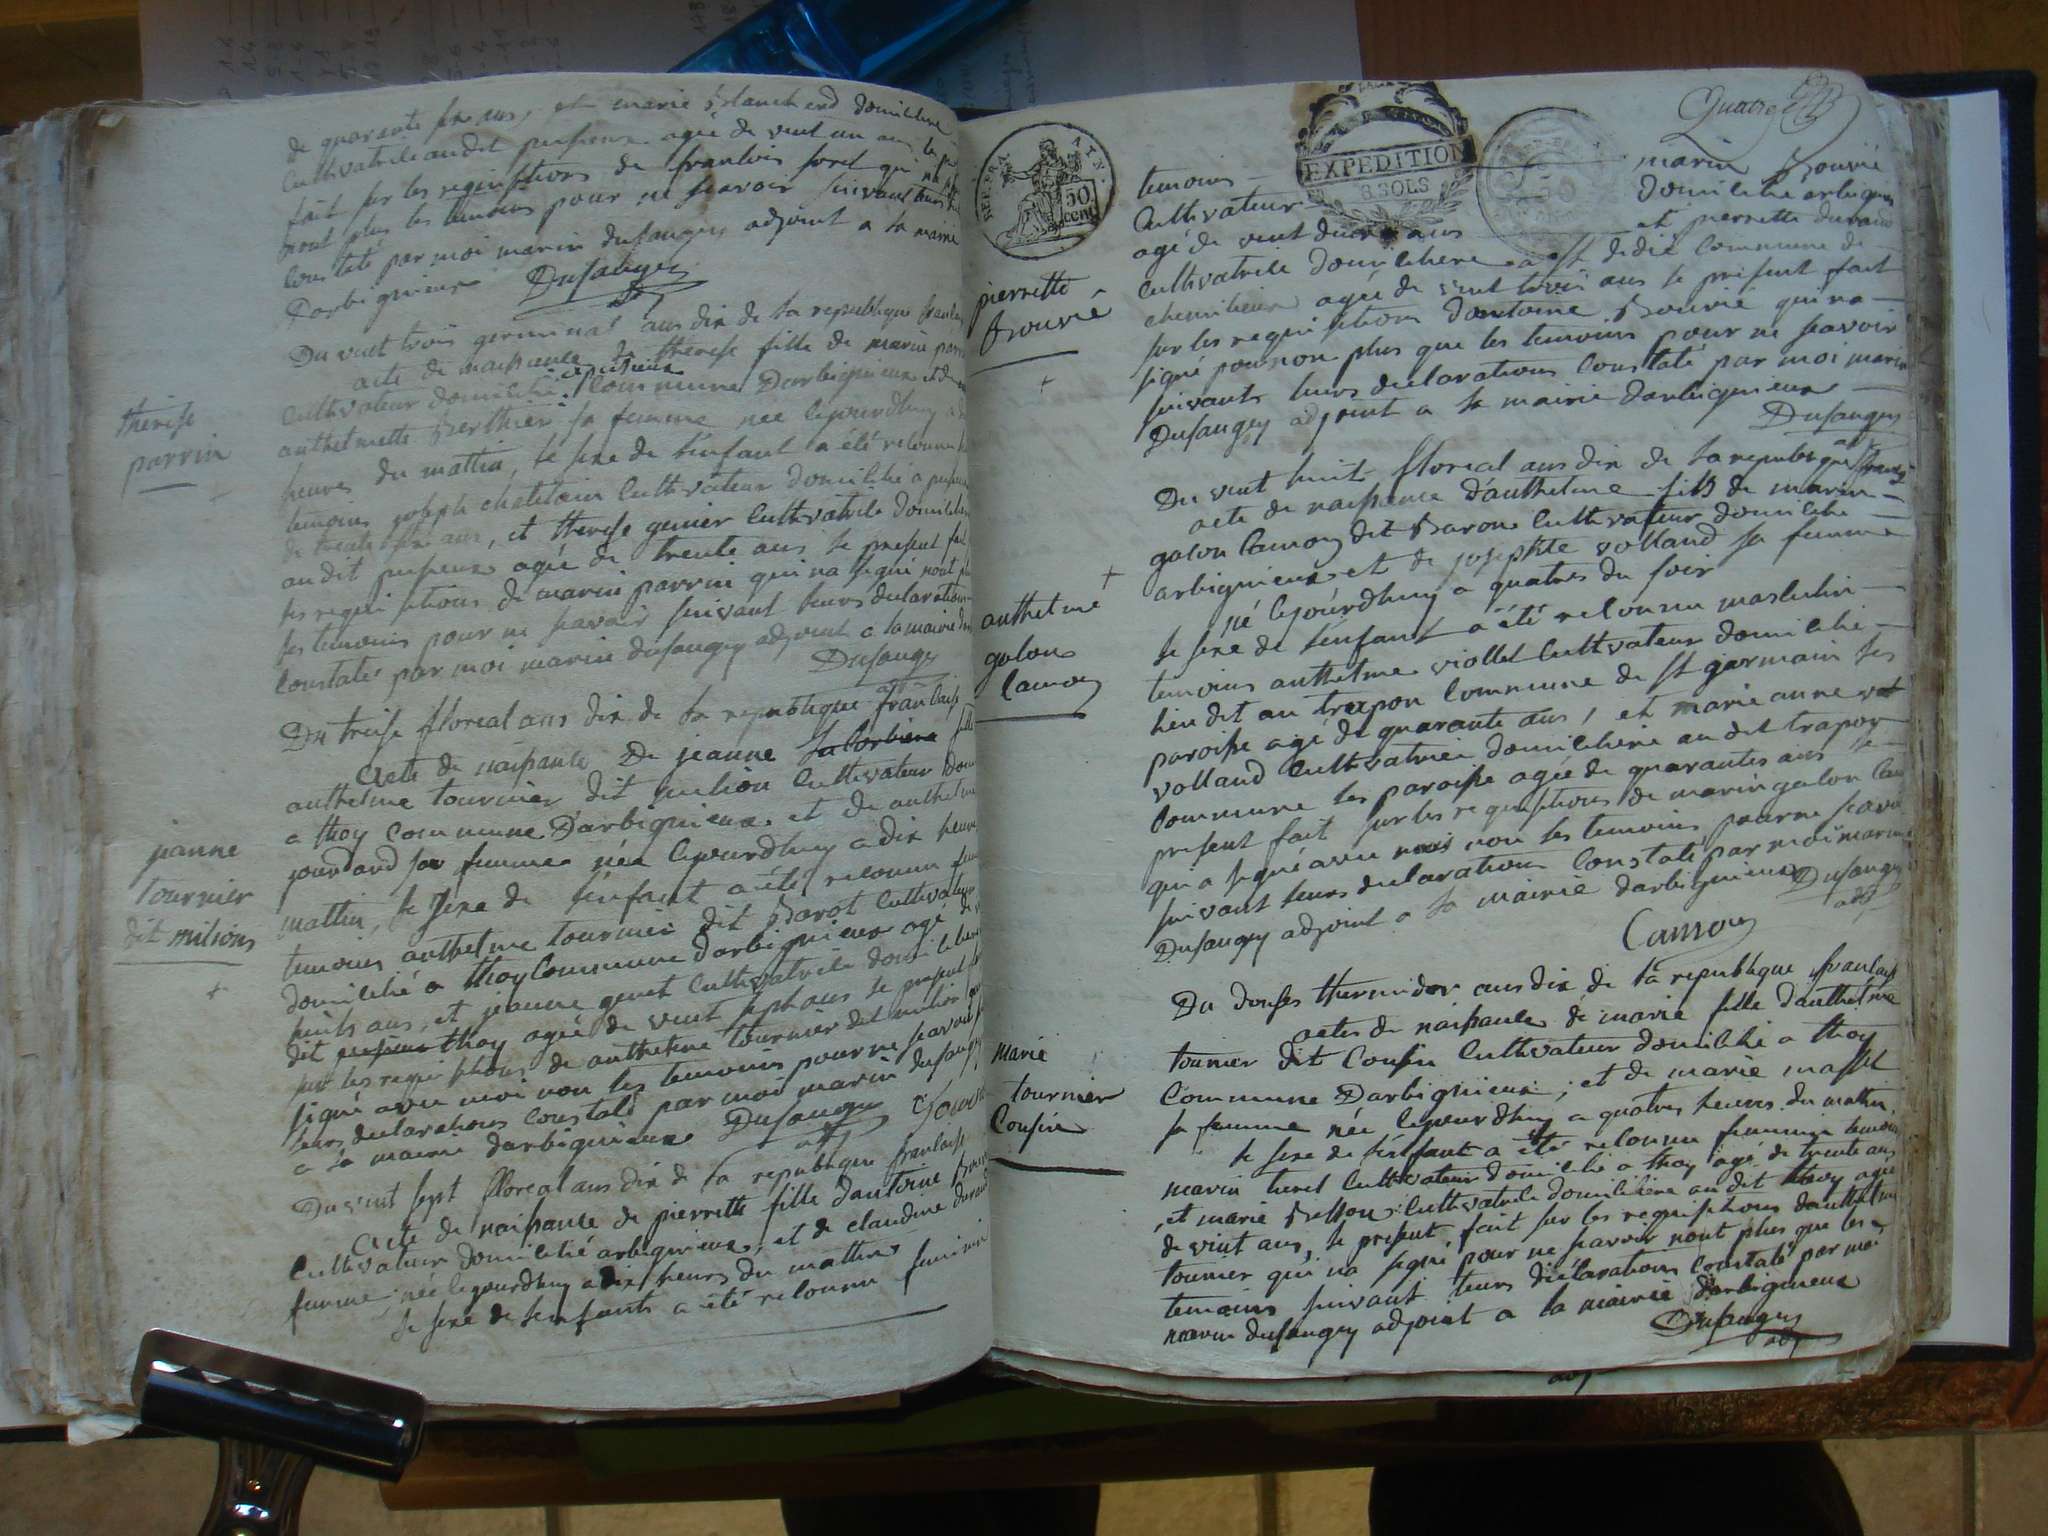 de quarante six ans, et marie blancherd domiciliere
cultivatrice audit peysieux agée de vint un ans le
fait sur les requisitions de francois foret qui na
nont plus les temoins pour ne scavoir suivant leurs
constaté par moi marin dusaugey adjoint a la mairie
Darbignieux Dusaugey
Du vint trois germinal ans dix de la republique francaise
acte de naissance de therese fille de marin parrin
cultivateur domicilié a peysieux commune Darbignieux et
anthelmette Berthier sa femme née cejourdhuy a
heures du mattin, le sexe de lenfant a été reconnu
temoins joseph chatelain cultivateur domicilié a
de trente six ans, et therese genier cultivatrice domiciliere
audit peysieux agée de trente ans le present fait
les requisitions de marin parrin qui na signé nont
les temoins pour ne scavoir suivant leurs declarations
constaté par moi marin dusaugey adjoint a la mairie
Dusaugey
adj
therese
parrin
+
Du treise floreal ans dix de la republique francaise
Acte de naissance De jeanne fille
anthelme tournier dit milion cultivateur
a thoy commune Darbignieux et de anthelme
jourdand sa femme née cejourdhuy a dix heure
mattin, le sexe de lenfant a été reconnu
temoins anthelme tournier dit Barot cultivateur
domicilié a thoy commune Darbignieux agé de
huits ans, et jeanne genet cultivatrice domiciliere
dit thoy agée de vint sept ans le present
sur les requisitions de anthelme tournier dit milion
signé avec moi non les temoins pour ne scavoir
leurs declarations constaté par moi marin dusaugey
a la mairie darbignieux Dusaugey
adj
jeanne
tournier
dit milions
+
Du vint sept floreal ans dix de la republique francaise
Acte de naissance de pierrette fille dantoine
cultivateur domicilié arbignieux, et de claudine durand
femme, née cejourdhuy a dix heures du mattin
le sexe de lenfants a été reconnu feminin
Quatre
REP. FRA.
50
cent
EXPEDITION
8 SOLS
pierrette
Bouvié
+
temoins marin Bouvié
Cultivateur domicilié arbignieux
agé de vint deux ans et pierrette durand
cultivatrice domiciliere a st didié commune de
chemilieu agée de vint trois ans le present fait
sur les requisitions dantoine Bouvié qui na
signé pour non plus que les temoins pour ne scavoir
suivants leurs declarations constaté par moi marin
Dusaugey adjoint a la mairie darbignieux
Dusaugey
adj
Du vint huit floreal ans dix de la republique
acte de naissance danthelme fils de marin
galon Camoz dit Baron cultivateur domicilié
arbignieux et de josephte volland sa femme
né cejourdhuy a quatres du soir
le sexe de lenfant a été reconnu masculin
temoins anthelme viollet cultivateur domicilié
lieu dit au trapon commune de st germain les
paroisse agé de quarante ans, et marie anne
volland cultivatrice domiciliere au dit trapon
commune les paroisse agée de quarantes ans le
present fait sur les requisitions de marin galon
qui a signé avec non les temoins pour ne scavoir
suivant leurs declarations constaté par moi marin
Dusaugey adjoint a la mairie darbignieux Dusaugey
Camoz adj
+
anthelme
galon
Camoz
Du douses thermidor ans dix de la republique francaise
actes de naissance de marie fille danthelme
tournier dit Cousin cultivateur domicilié a thoy
commune Darbignieux, et de marie masset
sa femme née cejourdhuy a quatres heures du mattin,
le sexe de lenfant a été reconnu feminin temoin
marin turel cultivateur domicilié a thoy agé de trente ans
, et marie Besson cultivatrice domiciliere au dit thoy agée
de vint ans, le present fait sur les requisitions danthelme
tournier qui na signé pour ne scavoir nont plus que les
temoins suivant leurs déclarations constaté par moi
marin dusaugey adjoint a la mairie Darbignieux
Dusaugey
adj
marie
tournier
Cousin